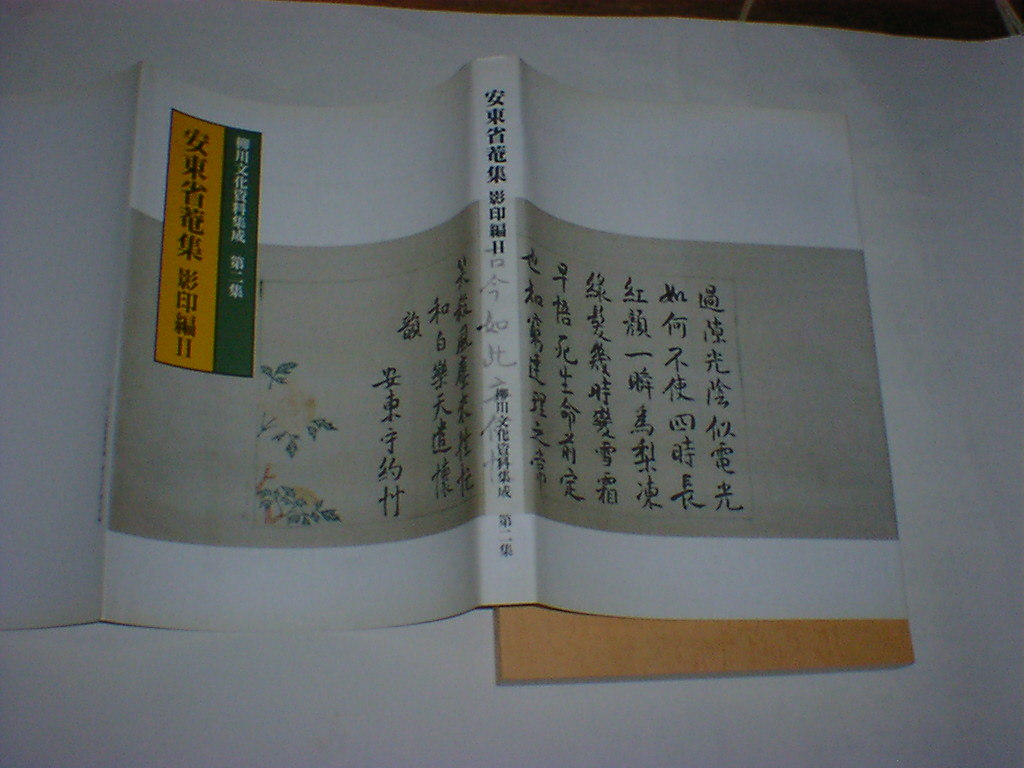 柳川文化資料集成 第二集
安東省菴集 影印編II
安東省菴集 影印編II
柳川文化資料集成 第二集
過隙光陰似電光
如何不使四時長
紅顔一瞬為梨凍
緑髪幾時變雪霜
早悟死生命前定
也知窮達理之常
古今如此
風塵来往忙
和白樂天遣懐
韻
安東守約艸